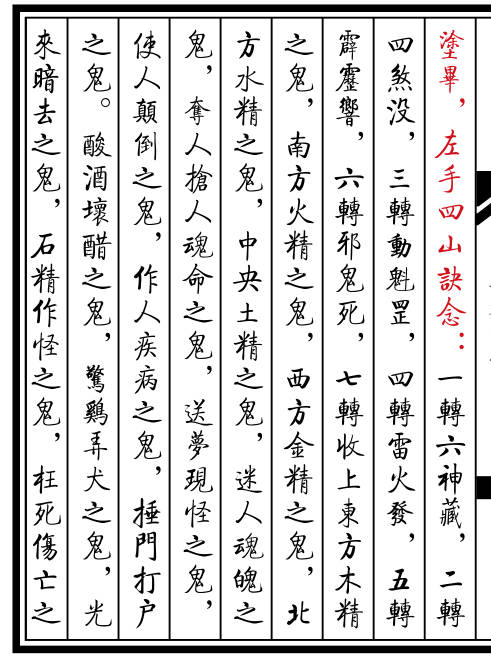 塗畢，左手四山訣念：一轉六神藏，二轉
四煞没，三轉動魁罡，四轉雷火發，五轉
霹靂響，六轉邪鬼死，七轉收上東方木精
之鬼，南方火精之鬼，西方金精之鬼，北
方水精之鬼，中央土精之鬼，迷人魂魄之
鬼，奪人搶人魂命之鬼，送夢現怪之鬼，
使人顛倒之鬼，作人疾病之鬼，捶門打户
之鬼。酸酒壞醋之鬼，驚鷄弄犬之鬼，光
來暗去之鬼，石精作怪之鬼，枉死傷亡之